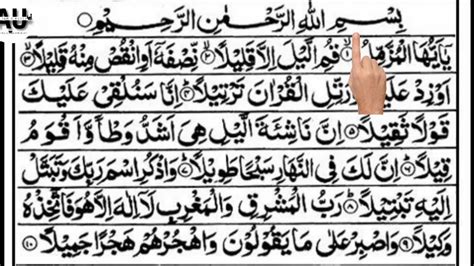 AU
بِسْمِ اللهِ الرَّحْمٰنِ الرَّحِيْمِ
يٰۤاَيُّهَا الْمُزَّمِّلُ ۙ﴿۱﴾ قُمِ الَّيْلَ اِلَّا قَلِيْلًا ۙ﴿۲﴾ نِّصْفَهٗۤ اَوِ انْقُصْ مِنْهُ قَلِيْلًا ۙ﴿۳﴾
اَوْ زِدْ عَلَيْهِ وَرَتِّلِ الْقُرْاٰنَ تَرْتِيْلًا ؕ﴿۴﴾ اِنَّا سَنُلْقِيْ عَلَيْكَ
قَوْلًا ثَقِيْلًا ﴿۵﴾ اِنَّ نَاشِئَةَ الَّيْلِ هِيَ اَشَدُّ وَطْاً وَّ اَقْوَمُ
قِيْلًا ؕ﴿۶﴾ اِنَّ لَكَ فِي النَّهَارِ سَبْحًا طَوِيْلًا ؕ﴿۷﴾ وَاذْكُرِ اسْمَ رَبِّكَ وَتَبَتَّلْ
اِلَيْهِ تَبْتِيْلًا ؕ﴿۸﴾ رَبُّ الْمَشْرِقِ وَالْمَغْرِبِ لَاۤ اِلٰهَ اِلَّا هُوَ فَاتَّخِذْهُ
وَكِيْلًا ﴿۹﴾ وَاصْبِرْ عَلٰى مَا يَقُوْلُوْنَ وَاهْجُرْهُمْ هَجْرًا جَمِيْلًا ﴿۱۰﴾